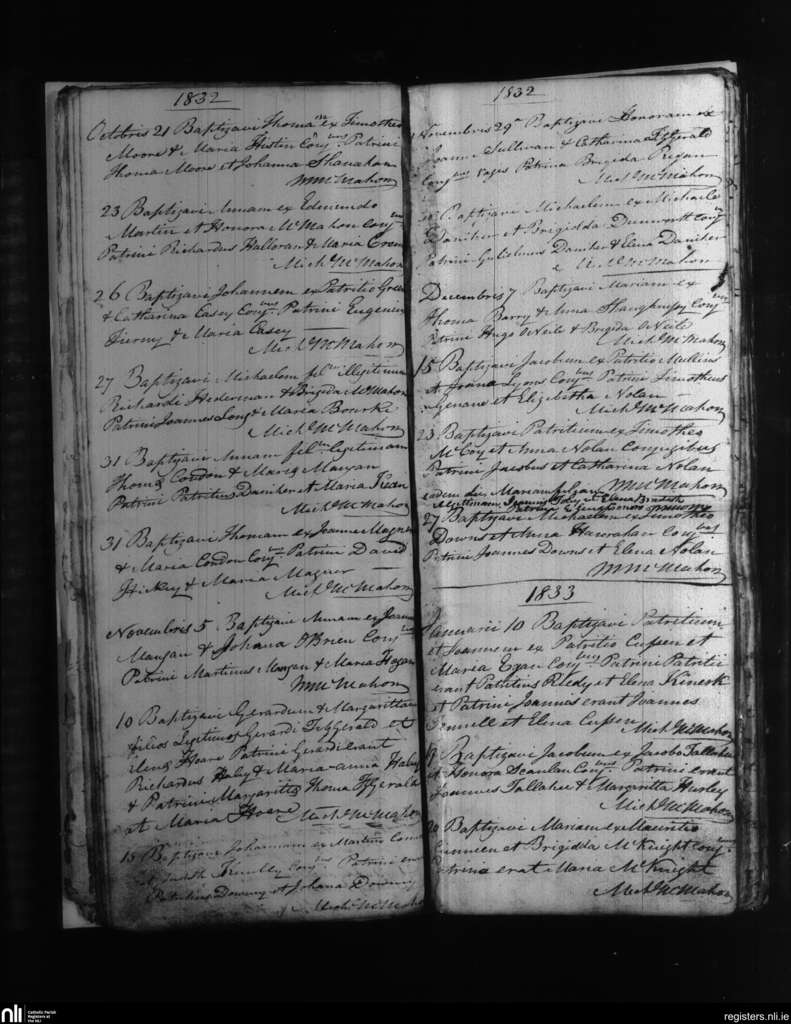 1832
Octobris 21 Baptizavi Thomam ex Timotheo
Moore & Maria Hestin Conj. Patrini
Thoma Moore et Johanna Shanahan
MMcMahon
23 Baptizavi Annam ex Edmundo
Martin et Honora McMahon Conj
Patrini Richardus Halloran & Maria
Mich McMahon
26 Baptizavi Johannem ex Patritio
& Catharina Casey Conjbus Patrini Eugenius
Tierny & Maria Casey
Mich McMahon
27 Baptizavi Michaelem
Richardi Hederman & Brigida McMahon
Patrini Joannes Long & Maria Bourke
Mich McMahon
31 Baptizavi Annam filam Legitimam
Thoma Condon & Maria Mangan
Patrini Patritius Daniher et Maria
Mich McMahon
31 Baptizavi Thomam ex Joanne Magner
& Maria Condon Conj Patrini David
Hickey & Maria Magner
Mich McMahon
Novembris 5 Baptizavi Annam ex Joanne
Mangan & Johana OBrien Conj
Patrini Martinus Mangan & Maria Hogan
MMcMahon
10 Baptizavi Gerardum & Margarittam
filios Legitimos Gerardi FitzGerald et
Hoare Patrini Gerardi erant
Richardus & Maria-anna
& Patrini Margaritta Thoma FfGerald
et Maria Hoare Mich McMahon
15 Baptizavi Johannam ex Martino
et Judith Conjbus Patrini
Patritius Downy et Johana Downy
Mich McMahon
1832
Novembris 29 Baptizavi Honoram ex
Joanne Sullivan & Catharina FfGerald
Conjbus vages Patrina Brigida Regan
Mich McMahon
Baptizavi Michaelem ex Michaele
Daniher et Brigidda Conj
Patrini Gulielmus Daniher & Elena Daniher
McMahon
Decembris 7 Baptizavi Mariam ex
Thoma Barry & Anna Shaughnessy Conj
Patrini Hugo ONeile & Brigida ONeile
Mich McMahon
15 Baptizavi Jacobum ex Patritio Mullins
et Joana Lyons Conjbus Patrini Timotheus
et Elizabitha Nolan
Mich McMahon
23 Baptizavi Patritium ex Timotheo
McCoy et Anna Nolan Conjugibus
Patrini Jacobus et Catharina Nolan
MMcMahon
eodem die Mariam
27 Baptizavi Michaelem ex Timotheo
Downs et Anna Hanrahan Conjbus
Patrini Joannes Downs et Elena Nolan
MMcMahon
1833
Januarii 10 Baptizavi Patritium
et Joannem ex Patritio Cussen et
Maria Egan Conjbus Patrini Patritii
erant Patritius Reidy et Elena
et Patrini Joannes erant Joannes
et Elena Cussen Mich McMahon
Baptizavi Jacobum ex Jacobo Fallahee
et Honora Scanlan Conjbus Patrini erant
Joannes Fallahee & Margaritta Hurley
Mich McMahon
20 Baptizavi Mariam ex Mauritio
et Brigidda McKnight Conj
Patrina erat Maria McKnight
Mich McMahon
nli
Catholic Parish
Registers at
the NLI
registers.nli.ie